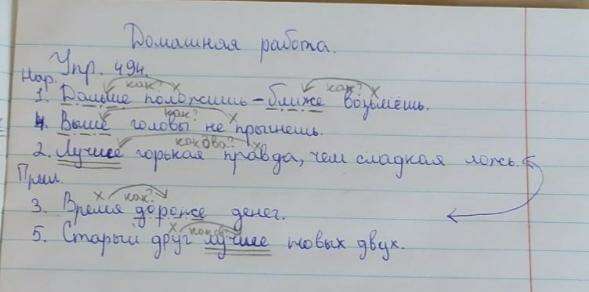 Домашная работа.
Упр. 494.
Нар.
как? как?
1. Дальше положишь – ближе возьмёшь.
как?
4. Выше головы не прыгнешь.
какова?
2. Лучше горькая правда, чем сладкая ложь.
Прил.
как?
3. Время дороже денег.
5. Старый друг лучше новых двух.